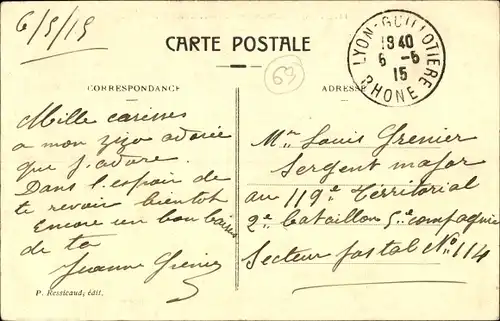 6/5/15
CARTE POSTALE
LYON-GUILLOTIERE
19 40
6 -5
15
RHONE
63
CORRESPONDANCE
ADRESSE
Mille caresses
a mon zizo adorée
que j'adore.
Dans l'espoir de
te revoir bientot
Encore un bon baiser
de ta
Jeanne Grenier
Mr Louis Grenier
Sergent major
au 119e Territorial
2e bataillon 5e compagnie
Secteur postal No 114
P. Ressicaud, édit.